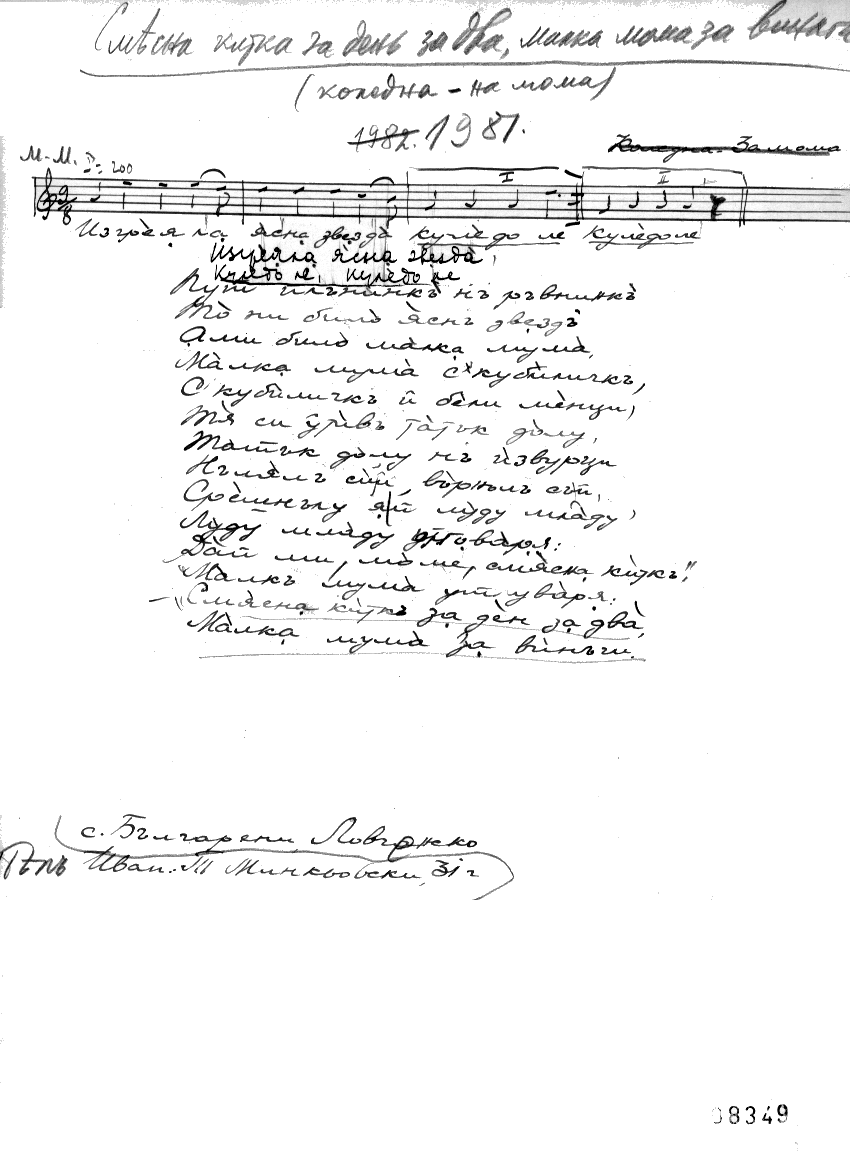 Смѣсна китка за день за два, малка мома за винаги
(коледна – на мома)
1982. 1981.
Коледна. За мома
М.-М. ♪= 200
I II
9/8
Изгрѐя ла я̀сна звезда̀ кулѐдо ле кулѐдоле
Изгрѐяла я̀сна звезда̀,
Кулѐдъ ле, кулѐдъ ле
Път плънинкъ нъ ръвнинкъ
То̀ ни било̀ я̀снъ звездъ̀
Ами било̀ ма̀лка мума̀,
Ма̀лка мума̀ с кубѝличкъ,
С кубѝличкъ и бѐли мѐнци,
Тя̀ си ѝривъ та̀тък до̀лу,
Та̀тък до̀лу нъ ѝзвурци
Нъля̀лъ си й, върнълъ си й,
Срѐшнълу я й лу̀ду мла̀ду
Лу̀ду мла̀ду ѝтгова̀ря:
„Да̀й ми, мо̀ме, смя̀сна кѝткъ",
Ма̀лкъ мума̀ ут ува̀ря:
– „Смя̀сна кѝткъ за дѐн за два̀,
Ма̀лка мума̀ за вѝнъги.
с. Българени, Ловчанско
Пѣлъ Иван. М Минковски, 31 г
08349